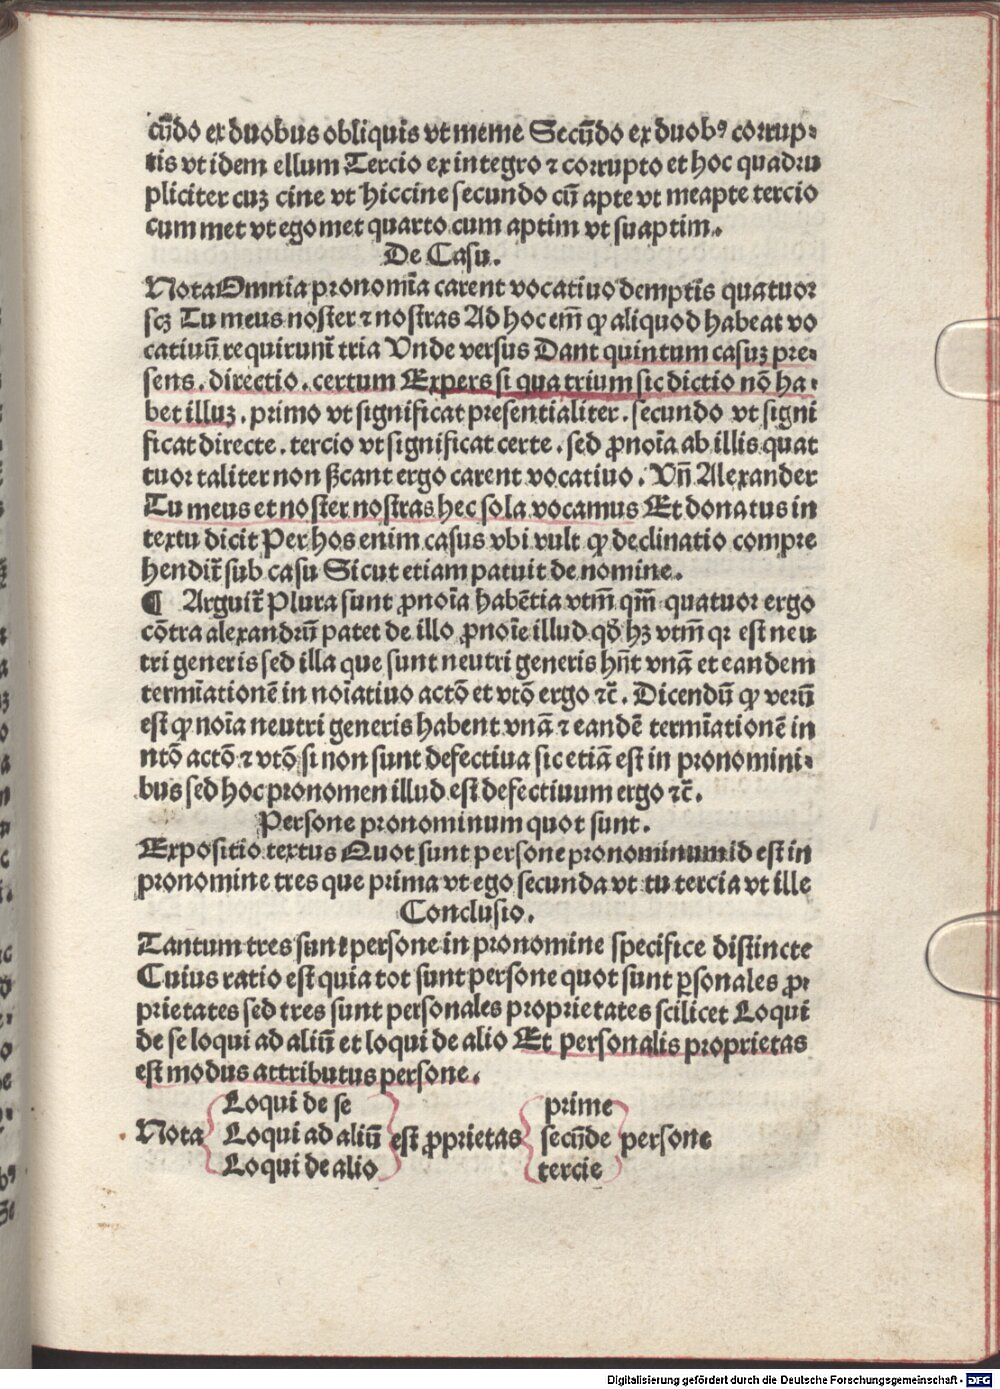 cūdo ex duobus obliquis vt meme Secūdo ex duobꝰ corrup⸗
tis vt idem ellum Tercio ex integro ⁊ corrupto et hoc quadru
pliciter cuꝫ cine vt hiccine secundo cū apte vt meapte tercio
cum met vt egomet quarto cum aptim vt suaptim.
De Casu.
Nota Omnia pronomīa carent vocatiuo demptis quatuor
scꝫ Tu meus noster ⁊ nostras Ad hoc em̄ ꝙ aliquod habeat vo
catiuū requirunt̄ tria Vnde versus Dant quintum casuꝫ pre⸗
sens. directio. certum Expers si qua trium sic dictio nō ha⸗
bet illuꝫ. primo vt significat presentialiter. secundo vt signi
ficat directe. tercio vt significat certe. sed ꝓnoīa ab illis quat
tuor taliter non ßcant ergo carent vocatiuo. Vn̄ Alexander
Tu meus et noster nostras hec sola vocamus Et donatus in
textu dicit Per hos enim casus vbi vult ꝙ declinatio compre
hendit̄ sub casu Sicut etiam patuit de nomine.
¶ Arguit̄ Plura sunt ꝓnoīa habētia vtm̄ qm̄ quatuor ergo
cōtra alexandrū patet de illo ꝓnoīe illud qđ hꝫ vtm̄ qꝛ est neu
tri generis sed illa que sunt neutri generis hn̄t vnā et eandem
termīationē in noīatiuo actō et vtō ergo ⁊c̄. Dicendū ꝙ verū
est ꝙ noīa neutri generis habent vnā ⁊ eandē termīationē in
ntō actō ⁊ vtō si non sunt defectiua sic etiā est in pronomini⸗
bus sed hoc pronomen illud est defectiuum ergo ⁊c̄.
Persone pronominum quot sunt.
Expositio textus Quot sunt persone pronominum id est in
pronomine tres que prima vt ego secunda vt tu tercia vt ille
Conclusio.
Tantum tres sunt persone in pronomine specifice distincte
Cuius ratio est quia tot sunt persone quot sunt ꝑsonales ꝓ⸗
prietates sed tres sunt personales proprietates scilicet Loqui
de se loqui ad aliū et loqui de alio Et personalis proprietas
est modus attributus persone.
Loqui de se prime
Nota Loqui ad aliū est ꝓprietas secūde persone
Loqui de alio tercie
Digitalisierung gefördert durch die Deutsche Forschungsgemeinschaft - DFG